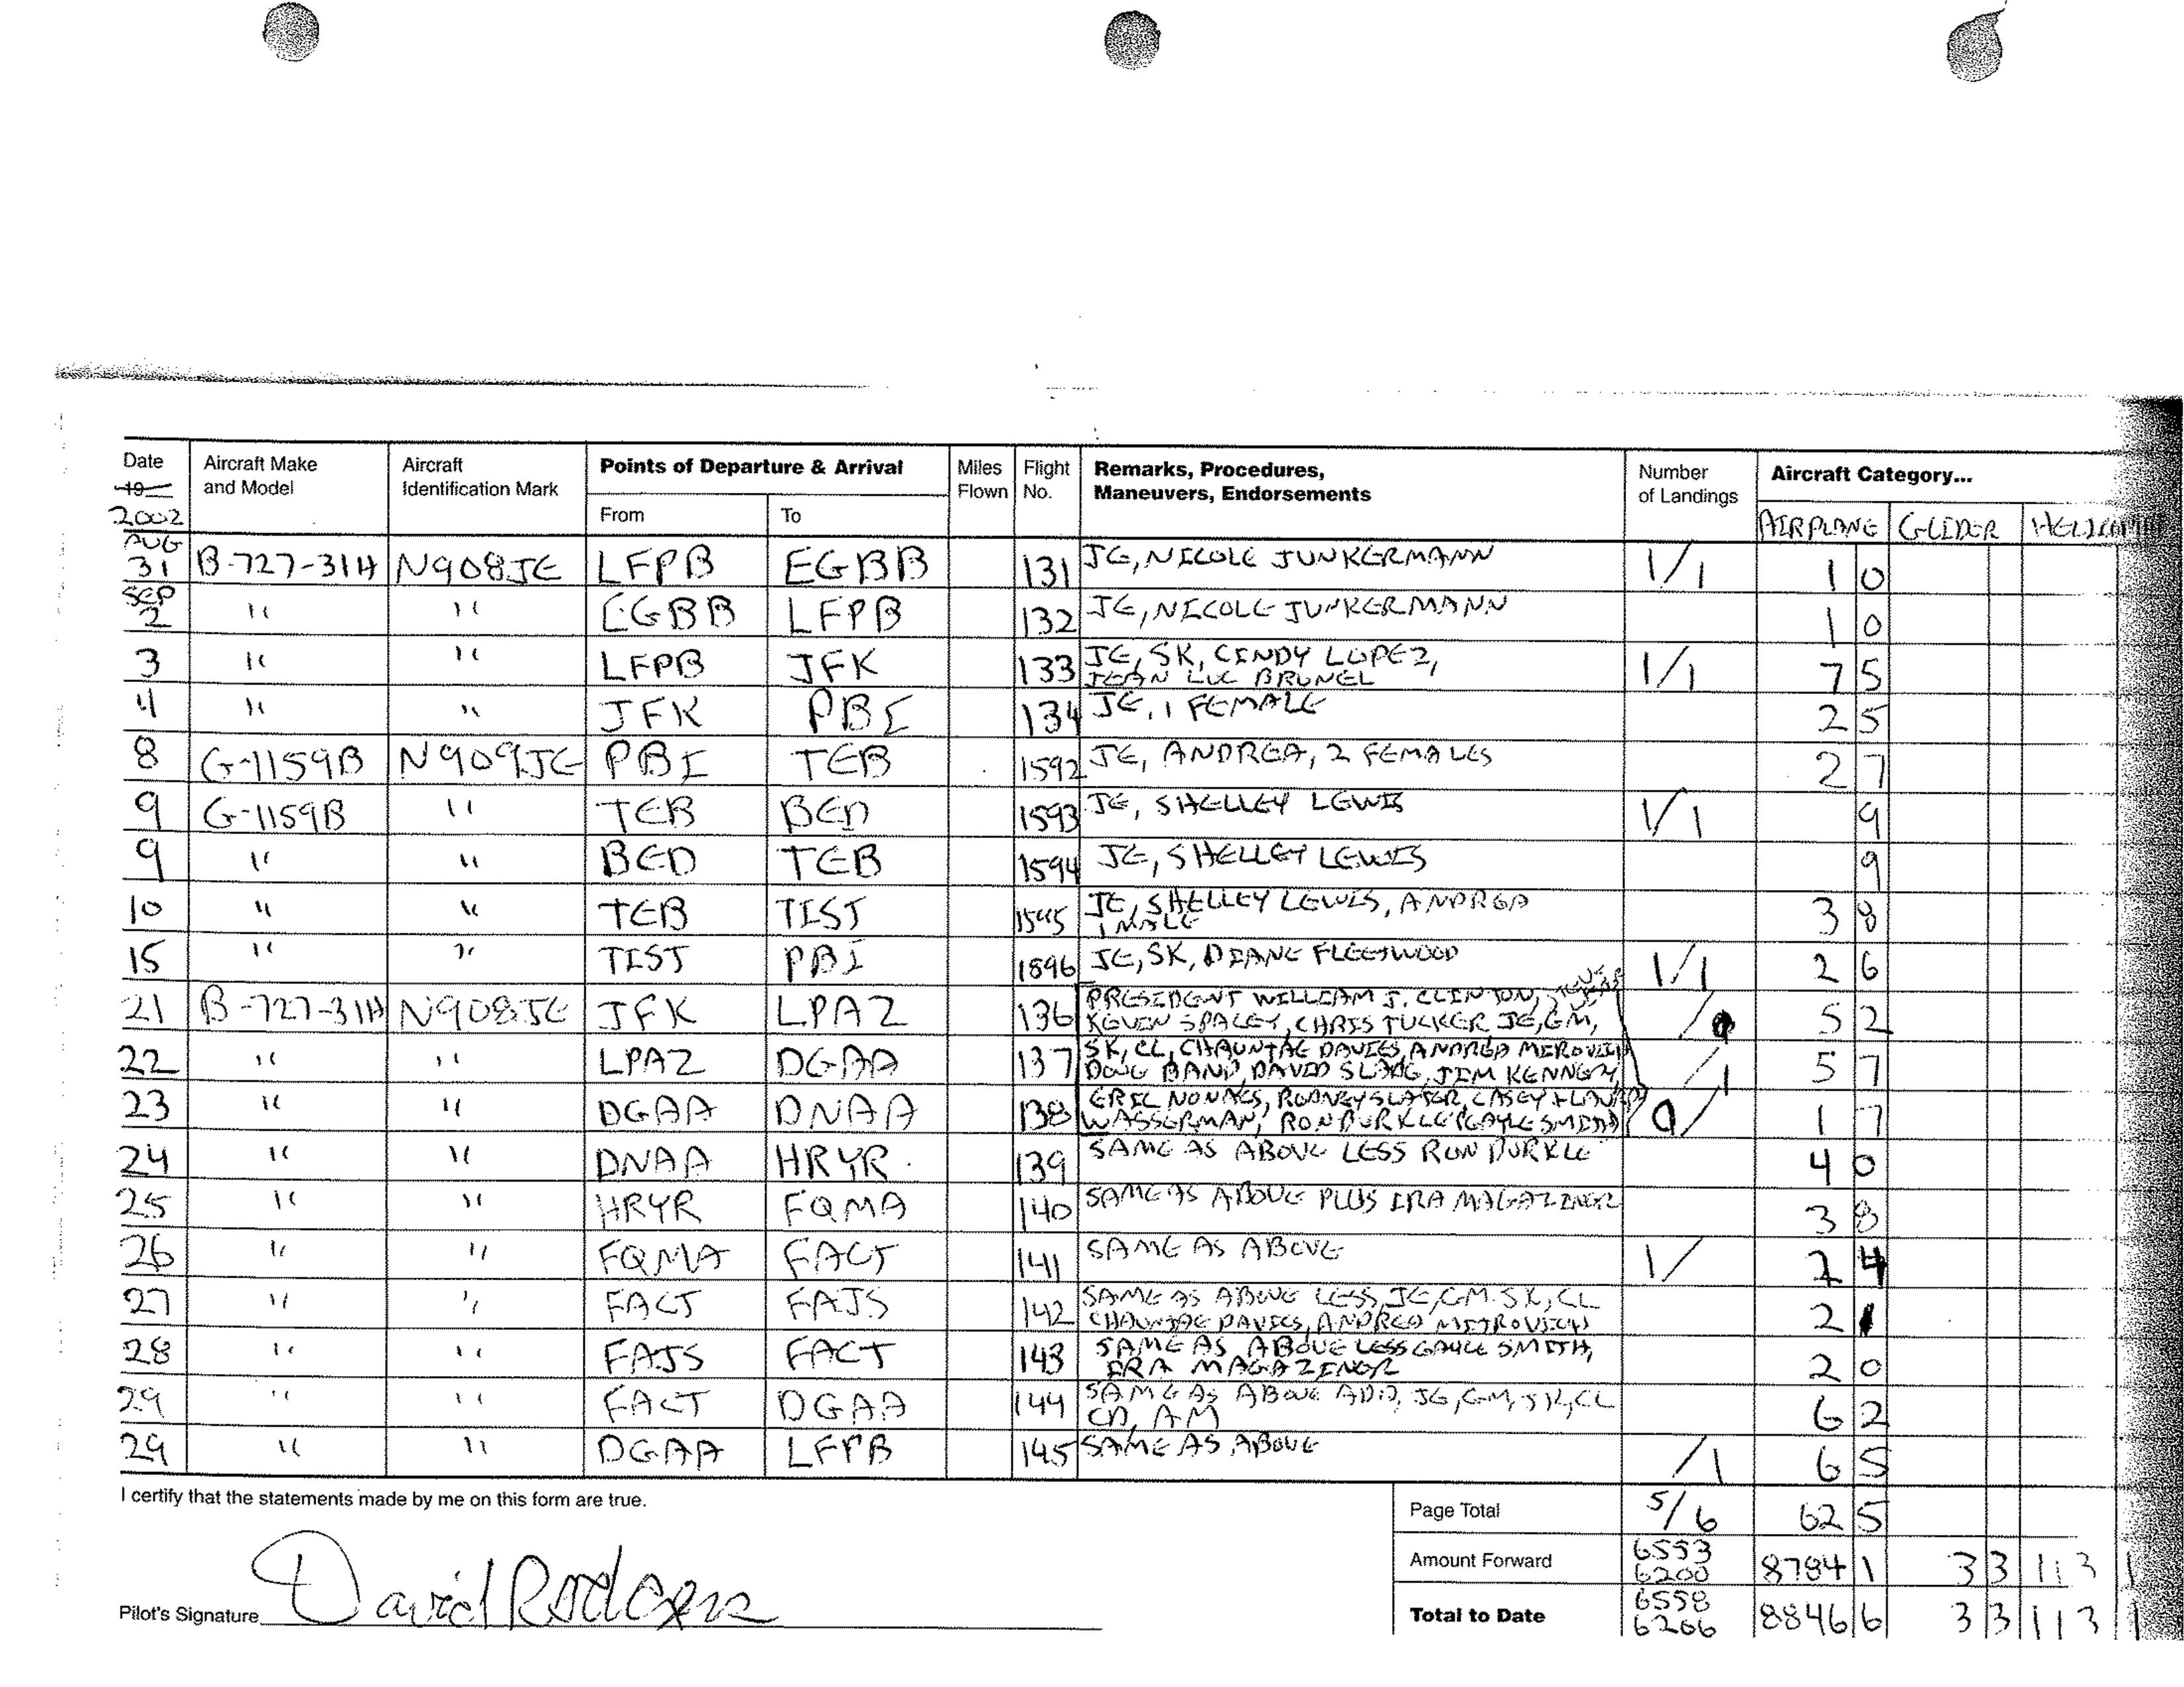 Date Aircraft Make Aircraft Points of Departure & Arrival Miles Flight Remarks, Procedures, Number Aircraft Category...
19 and Model Identification Mark Flown No. Maneuvers, Endorsements of Landings
2002 From To AIRPLANE GLIDER
AUG
31 B-727-31H N908JE LFPB EGBB 131 JE, NICOLE JUNKERMANN 1/1 1 0
SEP
2 " " EGBB LFPB 132 JE, NICOLE JUNKERMANN 1 0
3 " " LFPB JFK 133 JE, SK, CINDY LOPEZ, 1/1 7 5
JEAN LUC BRUNEL
4 " " JFK PBI 134 JE, 1 FEMALE 2 5
8 G-1159B N909JE PBI TEB 1592 JE, ANDREA, 2 FEMALES 2 7
9 G-1159B " TEB BED 1593 JE, SHELLEY LEWIS 1/1 9
9 " " BED TEB 1594 JE, SHELLEY LEWIS 9
10 " " TEB TIST 1595 JE, SHELLEY LEWIS, ANDREA 3 8
1 MALE
15 " " TIST PBI 1596 JE, SK, DIANE FLEETWOOD 1/1 2 6
21 B-727-31H N908JE JFK LPAZ 136 PRESIDENT WILLIAM J. CLINTON, 5 2
KEVIN SPACEY, CHRIS TUCKER JE, GM,
22 " " LPAZ DGAA 137 SK, CL, CHAUNTAE DAVIES, ANDREA /1 5 7
DOUG BAND, DAVID SLANG, JIM KENNEZ,
23 " " DGAA DNAA 138 ERIC NONACS, RODNEY SLATER, CASEY + 0/ 1 7
WASSERMAN, RON BURKLE, GAYLE SMITH
24 " " DNAA HRYR 139 SAME AS ABOVE LESS RON BURKLE 4 0
25 " " HRYR FQMA 140 SAME AS ABOVE PLUS IRA MAGAZINER 3 8
26 " " FQMA FACT 141 SAME AS ABOVE 1/ 2 4
27 " " FACT FAJS 142 SAME AS ABOVE LESS, JE, GM. SK, CL 2 1
CHAUNTAE DAVIES, ANDREA MITROVICH
28 " " FAJS FACT 143 SAME AS ABOVE LESS GAYLE SMITH, 2 0
IRA MAGAZINER
29 " " FACT DGAA 144 SAME AS ABOVE ADD, JE, GM, SK, CL 6 2
CD, AM
29 " " DGAA LFPB 145 SAME AS ABOVE /1 6 5
I certify that the statements made by me on this form are true. Page Total 5/6 62 5
Amount Forward 6553 6200 8784 1 3 3 113 1
Pilot's Signature David Rodgers Total to Date 6558 6206 8846 6 3 3 113 1